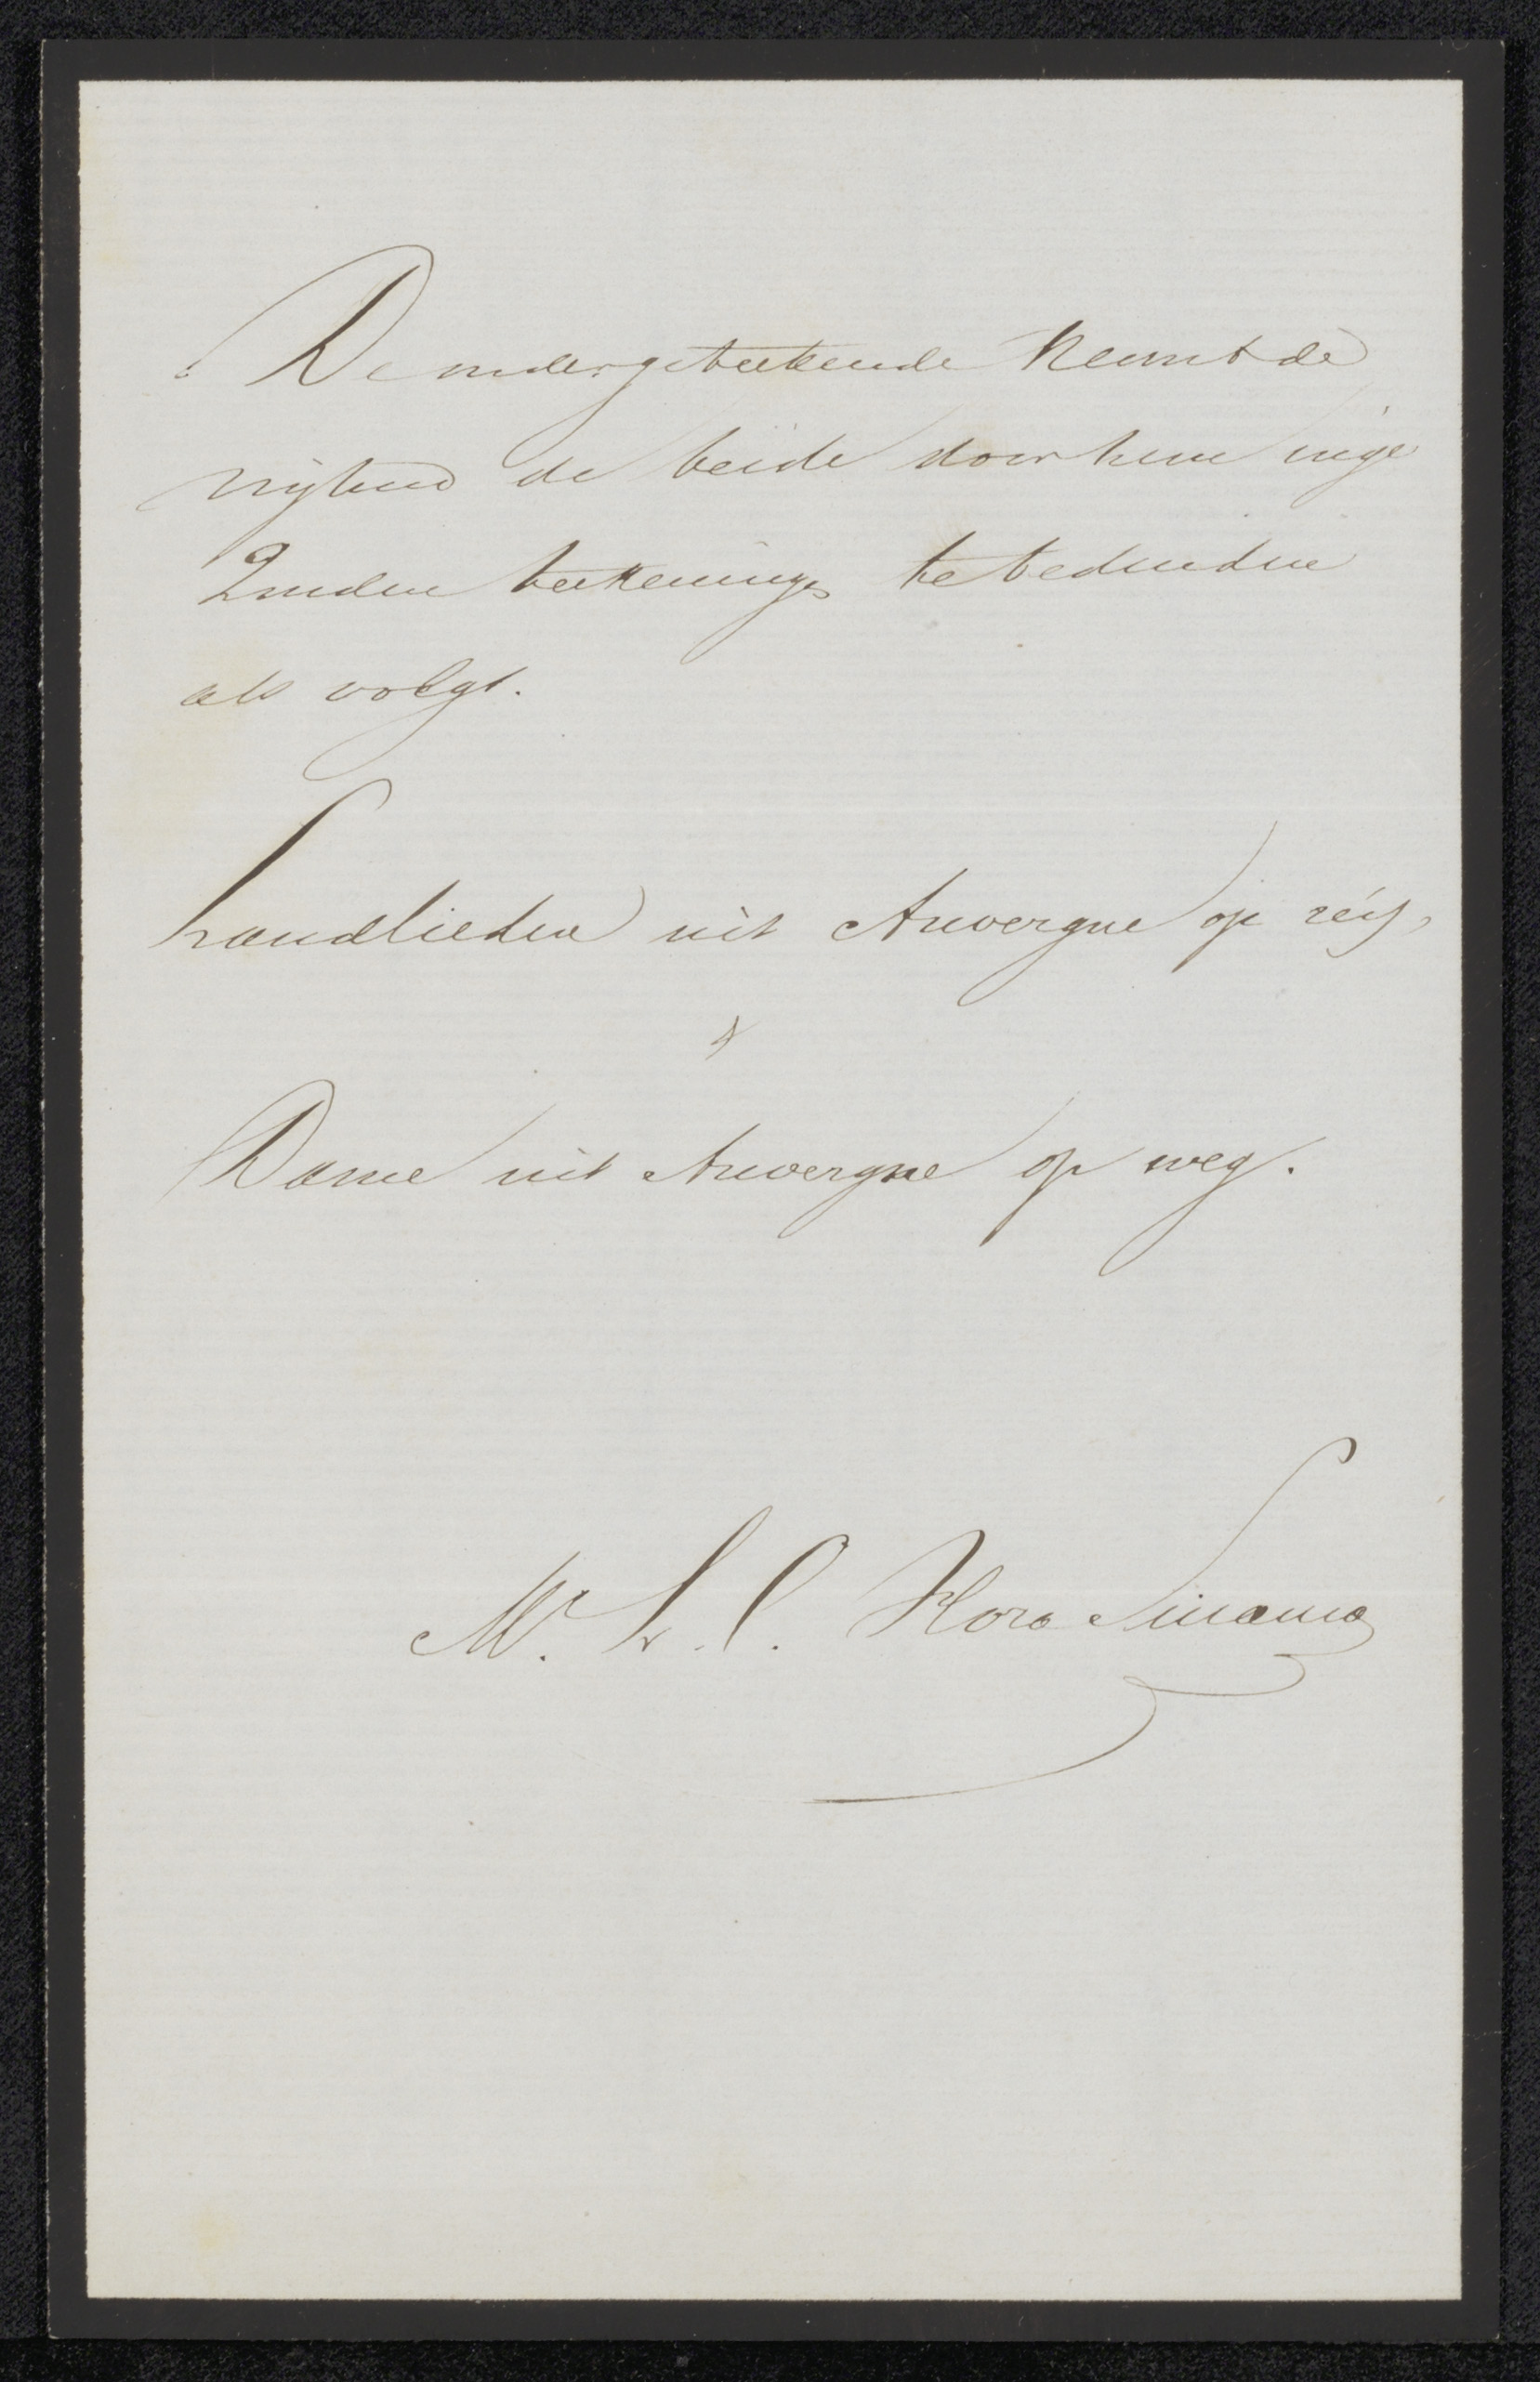 De ondergeteekende Neemt de
vryheid de beide door hem inge
Zonden teekeningen te beduiden
als volgt.
Landlieden uit Auvergne op reis,
&
Dame uit Auvergne op weg.
Mr. L. C. Hora Siccama